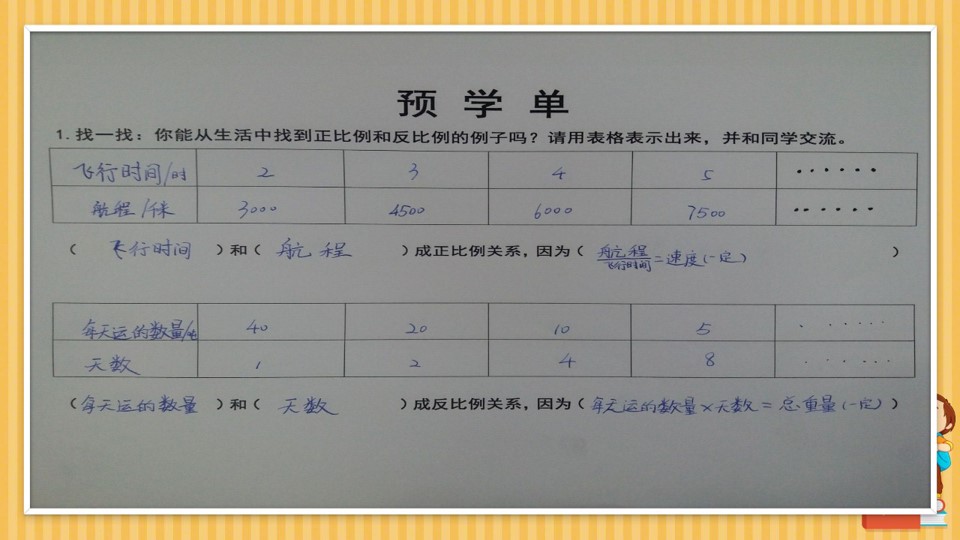 预学单
1. 找一找：你能从生活中找到正比例和反比例的例子吗？请用表格表示出来，并和同学交流。
飞行时间/时 2 3 4 5 ······
航程/千米 3000 4500 6000 7500 ······
（飞行时间）和（航程）成正比例关系，因为（航程/飞行时间=速度(一定)）
每天运的数量/吨 40 20 10 5 ······
天数 1 2 4 8 ······
（每天运的数量）和（天数）成反比例关系，因为（每天运的数量×天数=总重量(一定)）